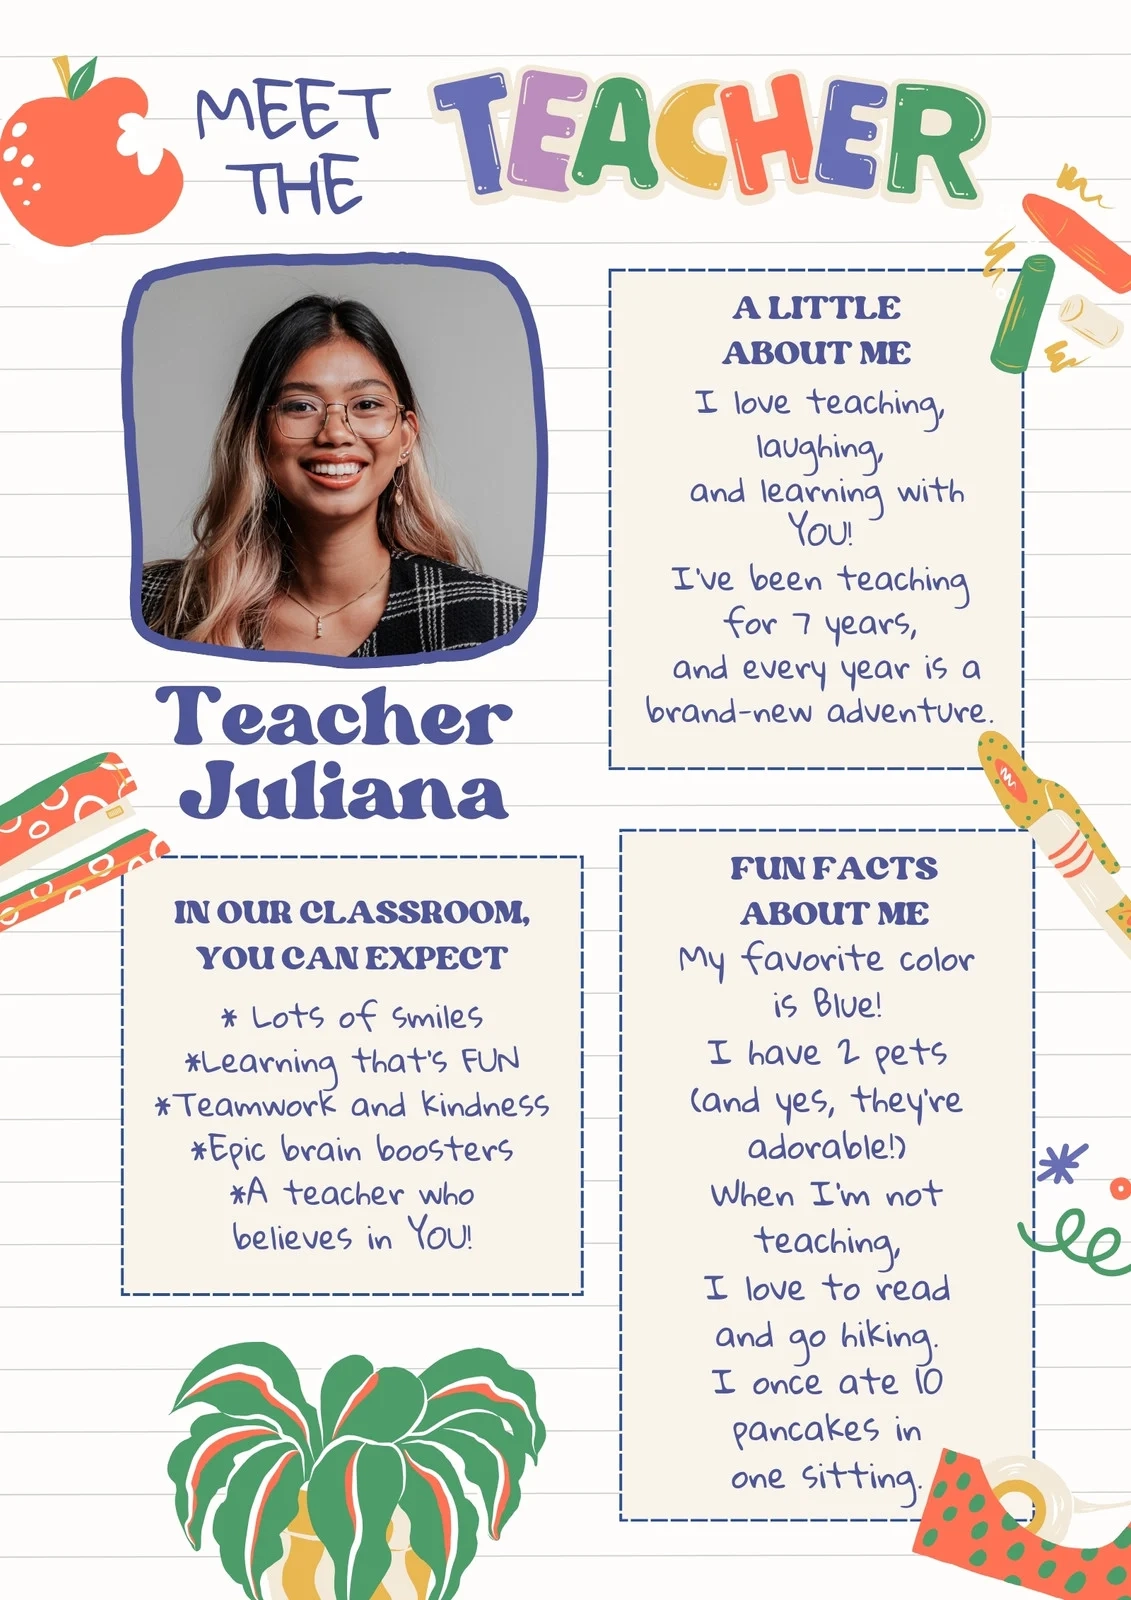 MEET
THE
TEACHER
Teacher
Juliana
A LITTLE
ABOUT ME
I love teaching,
laughing,
and learning with
YOU!
I've been teaching
for 7 years,
and every year is a
brand-new adventure.
IN OUR CLASSROOM,
YOU CAN EXPECT
* Lots of smiles
*Learning that's FUN
*Teamwork and kindness
*Epic brain boosters
*A teacher who
believes in YOU!
FUN FACTS
ABOUT ME
My favorite color
is Blue!
I have 2 pets
(and yes, they're
adorable!)
When I'm not
teaching,
I love to read
and go hiking.
I once ate 10
pancakes in
one sitting.